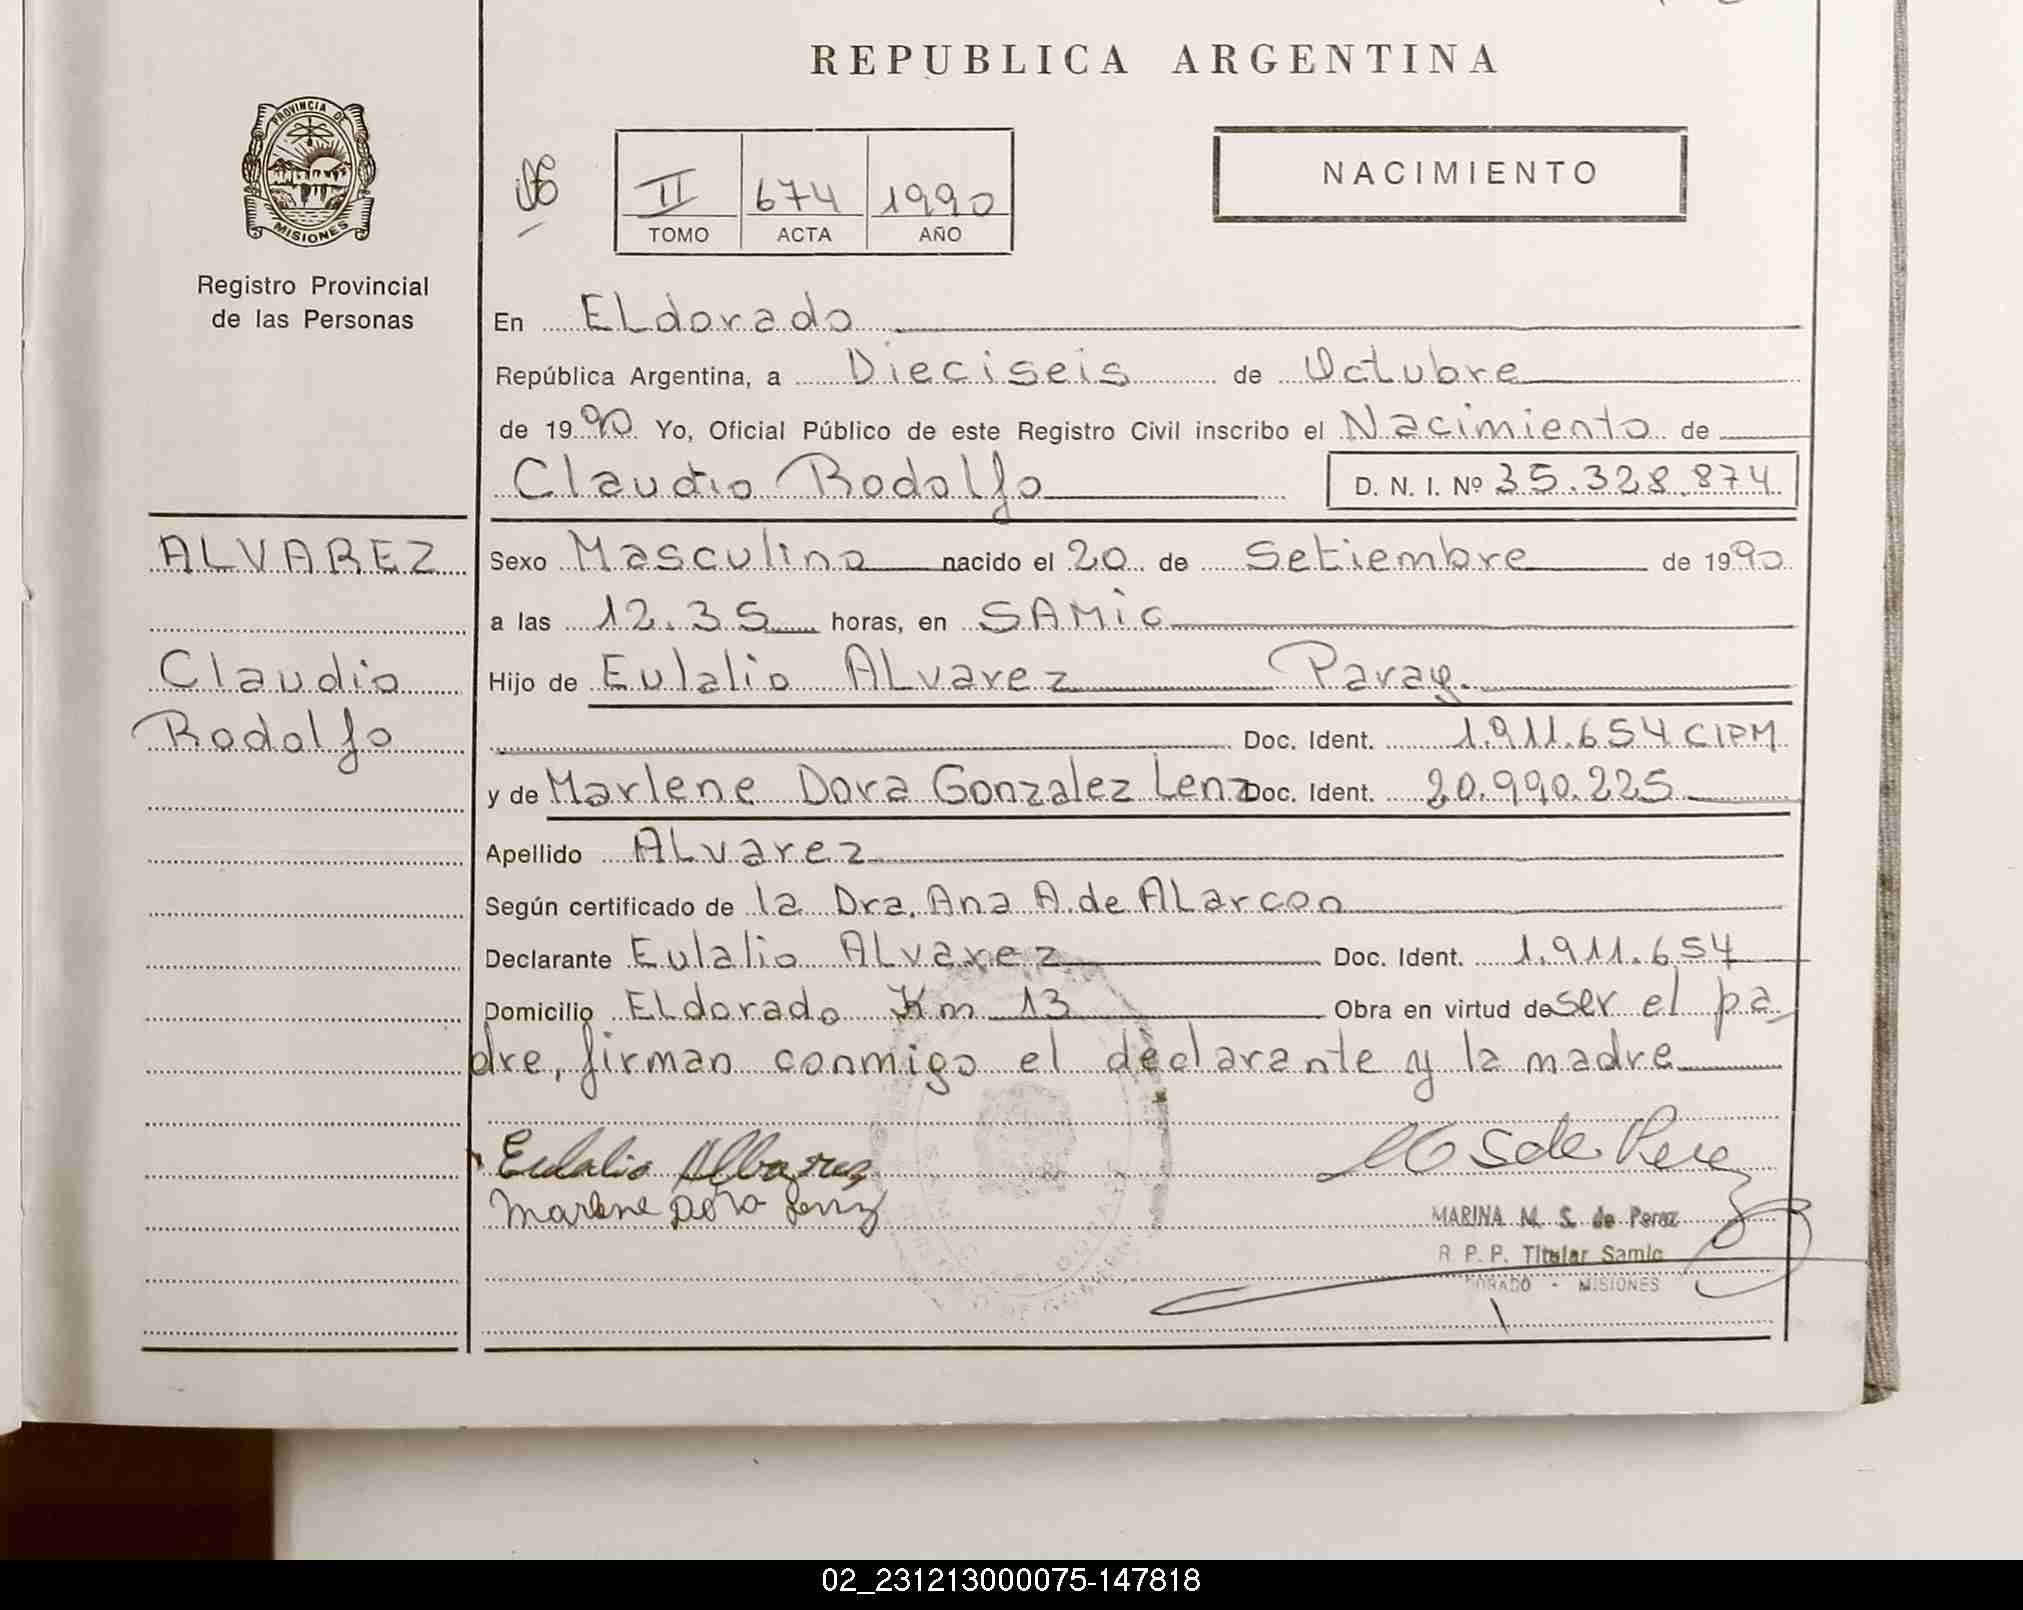 REPUBLICA ARGENTINA
PROVINCIA DE
MISIONES
NACIMIENTO
II 674 1990
TOMO ACTA AÑO
Registro Provincial
de las Personas
En ELdorado
República Argentina, a Dieciseis de Octubre
de 1990 Yo, Oficial Público de este Registro Civil inscribo el Nacimiento de
Claudio Rodolfo D. N. I. Nº 35.328.874
ALVAREZ
Claudio
Rodolfo
Sexo Masculino nacido el 20 de Setiembre de 1990
a las 12.35 horas, en SAMic
Hijo de Eulalio ALvarez Parag.
Doc. Ident. 1.911.654 CIPM
y de Marlene Dora Gonzalez Lenz Doc. Ident. 20.990.225
Apellido ALvarez
Según certificado de la Dra. Ana A. de ALarcon
Declarante Eulalio ALvarez Doc. Ident. 1.911.654
Domicilio ELdorado Km 13 Obra en virtud de ser el pa
dre, firman conmigo el declarante y la madre
Eulalio Albares
Marlene Dora Lenz
MSde Perez
MARINA M. S. de Perez
R. P. P. Titular Samic
DORADO - MISIONES
02_231213000075-147818